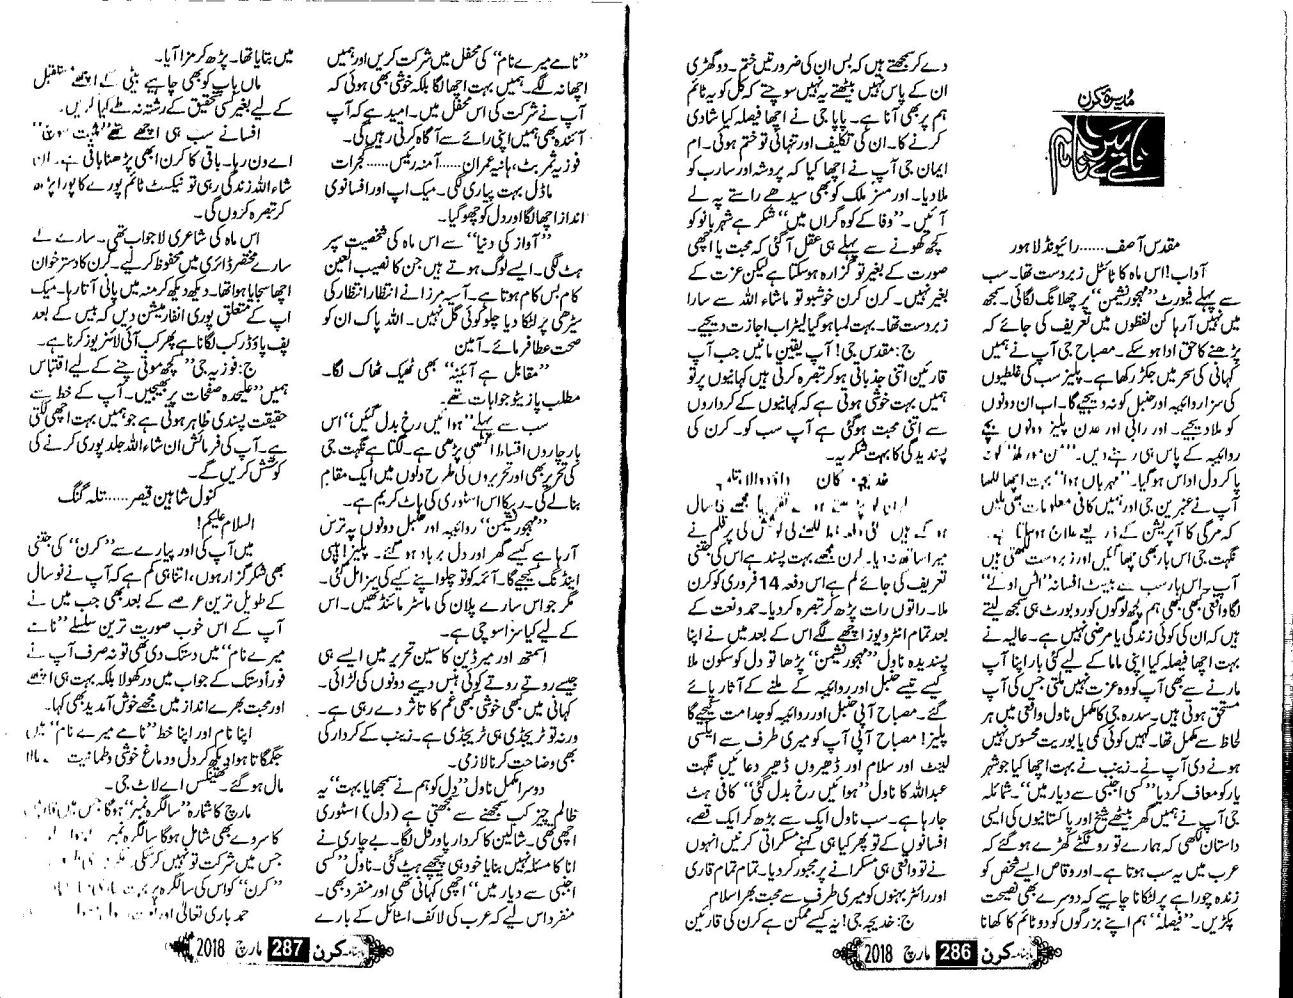 مدیرہ کرن
نامے میرے نام
مقدس آصف......رائیونڈ لاہور
آداب! اس ماہ کا ٹائٹل زبردست تھا۔ سب
سے پہلے فیورٹ "مہجور نشیمن" پر چھلانگ لگائی۔ سمجھ
میں نہیں آرہا کن لفظوں میں تعریف کی جائے کہ
پڑھنے کا حق ادا ہوسکے۔ مصباح جی آپ نے ہمیں
کہانی کی سحر میں جکڑ رکھا ہے۔ پلیز سب کی غلطیوں
کی سزا روائیبہ اور حنبل کو نہ دیجیے گا۔ اب ان دونوں
کو ملا دیجیے۔ اور رانی اور عدن پلیز دونوں بچے
روائیبہ کے پاس ہی رہنے دیں۔
پا کر دل اداس ہوگیا۔ "مہرباں ہوا" بہت اچھا لکھا
آپ نے عنبرین جی اور ہمیں کافی معلومات بھی ملیں
کہ مرگی کا آپریشن کے ذریعے علاج ہوسکتا ہے۔
نگہت جی اس بار بھی چھا گئیں اور زبردست لکھتی ہیں
آپ۔ اس بار سب سے بیسٹ افسانہ "اٹس اوکے"
لگا واقعی کبھی کبھی ہم کچھ لوگوں کو روبورٹ ہی سمجھ لیتے
ہیں کہ ان کی کوئی زندگی یا مرضی نہیں ہے۔ عالیہ نے
بہت اچھا فیصلہ کیا اپنی ماما کے لیے کئی بار اپنا آپ
مارنے سے بھی آپ کو وہ عزت نہیں ملتی جس کی آپ
مستحق ہوتی ہیں۔ سدرہ جی کا مکمل ناول واقعی میں ہر
لحاظ سے مکمل تھا۔ کہیں کوئی کمی یا بوریت محسوس نہیں
ہونے دی آپ نے۔ زینب نے بہت اچھا کیا جو شہر
یار کو معاف کردیا "کسی اجنبی سے دیار میں"۔ شمائلہ
جی آپ نے ہمیں گھر بیٹھے شیخ اور پاکستانیوں کی ایسی
داستان لکھی کہ ہمارے تو رونگٹے کھڑے ہوگئے کہ
عرب میں یہ سب ہوتا ہے۔ اور وقاص ایسے شخص کو
زندہ چوراہے پر لٹکانا چاہیے کہ دوسرے بھی نصیحت
پکڑیں۔ "فیصلہ" ہم اپنے بزرگوں کو دو ٹائم کا کھانا
دے کر سمجھتے ہیں کہ بس ان کی ضرورتیں ختم۔ دو گھڑی
ان کے پاس نہیں بیٹھتے یہ نہیں سوچتے کہ کل کو یہ ٹائم
ہم پر بھی آنا ہے۔ پاپا جی نے اچھا فیصلہ کیا شادی
کرنے کا۔ ان کی تکلیف اور تنہائی تو ختم ہوئی۔ ام
ایمان جی آپ نے اچھا کیا کہ پروشہ اور سارب کو
ملا دیا۔ اور مسز ملک کو بھی سیدھے راستے پہ لے
آئیں۔ "وفا کے کوہ گراں میں" شکر ہے شہربانو کو
کچھ کھونے سے پہلے ہی عقل آگئی کہ محبت یا اچھی
صورت کے بغیر تو گزارہ ہوسکتا ہے لیکن عزت کے
بغیر نہیں۔ کرن کرن خوشبو تو ماشاء اللہ سے سارا
زبردست تھا۔ بہت لمبا ہوگیا لیٹر اب اجازت دیجیے۔
ج: مقدس جی! آپ یقین مانیں جب آپ
قارئین اتنی جذباتی ہوکر تبصرہ کرتی ہیں کہانیوں پر تو
ہمیں بہت خوشی ہوتی ہے کہ کہانیوں کے کرداروں
سے اتنی محبت ہوگئی ہے آپ سب کو۔ کرن کی
پسندیدگی کا بہت شکریہ۔
تعریف کی جائے کم ہے اس دفعہ 14 فروری کو کرن
ملا۔ راتوں رات پڑھ کر تبصرہ کردیا۔ حمد و نعت کے
بعد تمام انٹرویوز اچھے لگے اس کے بعد میں نے اپنا
پسندیدہ ناول "مہجور نشیمن" پڑھا تو دل کو سکون ملا
کیسے تیسے حنبل اور روائیبہ کے ملنے کے آثار پائے
گئے۔ مصباح آپی حنبل اور روائیبہ کو جدا مت کیجیے گا
پلیز! مصباح آپی آپ کو میری طرف سے ایکسی
لینٹ اور سلام اور ڈھیروں ڈھیر دعائیں نگہت
عبداللہ کا ناول "ہوائیں رخ بدل گئی" کافی ہٹ
جارہا ہے۔ سب ناول ایک سے بڑھ کر ایک تھے،
افسانوں کے تو پھر کیا ہی کہنے مسکراتی کرنیں انہوں
نے تو واقعی ہی مسکرانے پر مجبور کردیا۔ تمام تمام قاری
اور رائٹر بہنوں کو میری طرف سے محبت بھرا سلام
ج: خدیجہ جی! یہ کیسے ممکن ہے کرن کی قارئین
ماہنامہ کرن 286 مارچ 2018
"نامے میرے نام" کی محفل میں شرکت کریں اور ہمیں
اچھا نہ لگے۔ ہمیں بہت اچھا لگا بلکہ خوشی بھی ہوئی کہ
آپ نے شرکت کی اس محفل میں۔ امید ہے کہ آپ
آئندہ بھی ہمیں اپنی رائے سے آگاہ کرتی رہیں گی۔
فوزیہ ثمر بٹ، ہانیہ عمران......آمنہ رئیس......گجرات
ماڈل بہت پیاری لگی۔ میک اپ اور افسانوی
انداز اچھا لگا اور دل کو چھو گیا۔
"آواز کی دنیا" سے اس ماہ کی شخصیت سپر
ہٹ لگی۔ ایسے لوگ ہوتے ہیں جن کا نصیب العین
کام بس کام ہوتا ہے۔ آسیہ مرزا نے انتظار انتظار کی
سیڑھی پر لٹکا دیا چلو کوئی گل نہیں۔ اللہ پاک ان کو
صحت عطا فرمائے۔ آمین
"مقابل ہے آئینہ" بھی ٹھیک ٹھاک لگا۔
مطلب پازیٹو جوابات تھے۔
سب سے پہلے "ہوائیں رخ بدل گئیں" اس
بار چاروں اقساط اکٹھی پڑھی ہے۔ لگتا ہے نگہت جی
کی تحریر بھی اور تحریروں کی طرح دلوں میں ایک مقام
بنالے گی۔ ریکا اس اسٹوری کی ہاٹ کریم ہے۔
"مہجور نشیمن" روائیبہ اور حنبل دونوں پہ ترس
آرہا ہے کیسے گھر اور دل برباد ہوگئے۔ پلیز! ہیپی
اینڈنگ کیجیے گا۔ آئمہ کو تو چلو اپنے کیے کی سزا مل گئی۔
مگر جو اس سارے پلان کی ماسٹر مائنڈ تھیں۔ اس
کے لیے کیا سزا سوچی ہے۔
اسمتھ اور میرڈین کا سین تحریر میں ایسے ہی
جیسے روتے روتے کوئی ہنس دیے دونوں کی لڑائی۔
کہانی میں کبھی خوشی کبھی غم کا تاثر دے رہی ہے۔
ورنہ تو ٹریجڈی ہی ٹریجڈی ہے۔ زینب کے کردار کی
بھی وضاحت کرنا لازمی۔
دوسرا مکمل ناول "دل کو ہم نے سمجھایا بہت" یہ
ظالم چیز کب سمجھنے سے سمجھتی ہے (دل) اسٹوری
اچھی تھی۔ شالین کا کردار پاورفل لگا۔ بے چاری نے
انا کا مسئلہ نہیں بنایا خود ہی پیچھے ہٹ گئی۔ ناول "کسی
اجنبی سے دیار میں" اچھی کہانی تھی اور منفرد بھی۔
منفرد اس لیے کہ عرب کی لائف اسٹائل کے بارے
میں بتایا تھا۔ پڑھ کر مزا آیا۔
ماں باپ کو بھی چاہیے بیٹی کے اچھے مستقبل
کے لیے بغیر کسی تحقیق کے رشتہ نہ طے کیا کریں۔
افسانے سب ہی اچھے تھے "مثبت سوچ"
اے ون رہا۔ باقی کا کرن ابھی پڑھنا باقی ہے۔ ان
شاء اللہ زندگی رہی تو نیکسٹ ٹائم پورے کا پورا پڑھ
کر تبصرہ کروں گی۔
اس ماہ کی شاعری لاجواب تھی۔ سارے کے
سارے مختصر ڈائری میں محفوظ کرلیے۔ کرن کا دسترخوان
اچھا سجایا ہوا تھا۔ دیکھ دیکھ کر منہ میں پانی آتا رہا۔ میک
اپ کے متعلق پوری انفارمیشن دیں کہ بیس کے بعد
پف پاؤڈر کب لگانا ہے پھر کب آئی لائنر یوز کرنا ہے۔
ج: فوزیہ جی "کچھ موتی چنے کے لیے اقتباس
ہمیں "علیحدہ صفحات پر بھیجیں۔ آپ کے خط سے
حقیقت پسندی ظاہر ہوتی ہے جو ہمیں بہت اچھی لگتی
ہے۔ آپ کی فرمائش ان شاء اللہ جلد پوری کرنے کی
کوشش کریں گے۔
کنول شاہین قیصر......تلہ گنگ
السلام علیکم!
میں آپ کی اور پیارے سے "کرن" کی جتنی
بھی شکر گزار ہوں، اتنا ہی کم ہے کہ آپ نے نو سال
کے طویل ترین عرصے کے بعد بھی جب میں نے
آپ کے اس خوب صورت ترین سلسلے "نامے
میرے نام" میں دستک دی تھی تو نہ صرف آپ نے
فوراً دستک کے جواب میں در کھولا بلکہ بہت ہی اچھے
اور محبت بھرے انداز میں مجھے خوش آمدید بھی کہا۔
اپنا نام اور اپنا خط "نامے میرے نام" میں
جگمگاتا ہوا دیکھ کر دل و دماغ خوشی و طمانیت سے مالا
مال ہوگئے۔ تھینکس اے لاٹ جی۔
مارچ کا شمارہ "سالگرہ نمبر" ہوگا جس میں
کا سروے بھی شامل ہوگا سالگرہ نمبر
جس میں شرکت تو نہیں کرسکی
"کرن" کو اس کی سالگرہ پر بہت
حمد باری تعالیٰ اور
ماہنامہ کرن 287 مارچ 2018